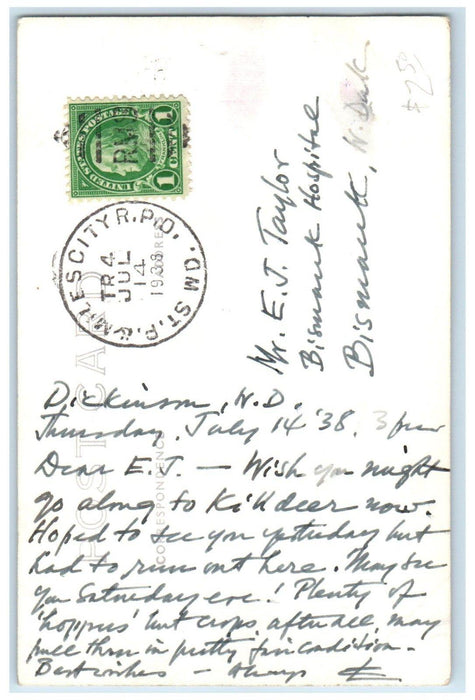 $7.50
UNITED STATES POSTAGE
1 CENT 1
MILES CITY R.P.O.
ST. P. &
TR 4
JUL
14
1938
POST CARD
CORRESPONDENCE
Mr. E.J. Taylor
Bismarck Hospital
Bismarck, N. Dak.
Dickinson, N.D.
Thursday, July 14 '38. 3 pm
Dear E.J. — Wish you might
go along to Killdeer now.
Hoped to see you yesterday but
had to run out here. May see
you Saturday eve! Plenty of
'hoppers' but crops, after all, may
pull thru in pretty fair condition.
Best wishes — always